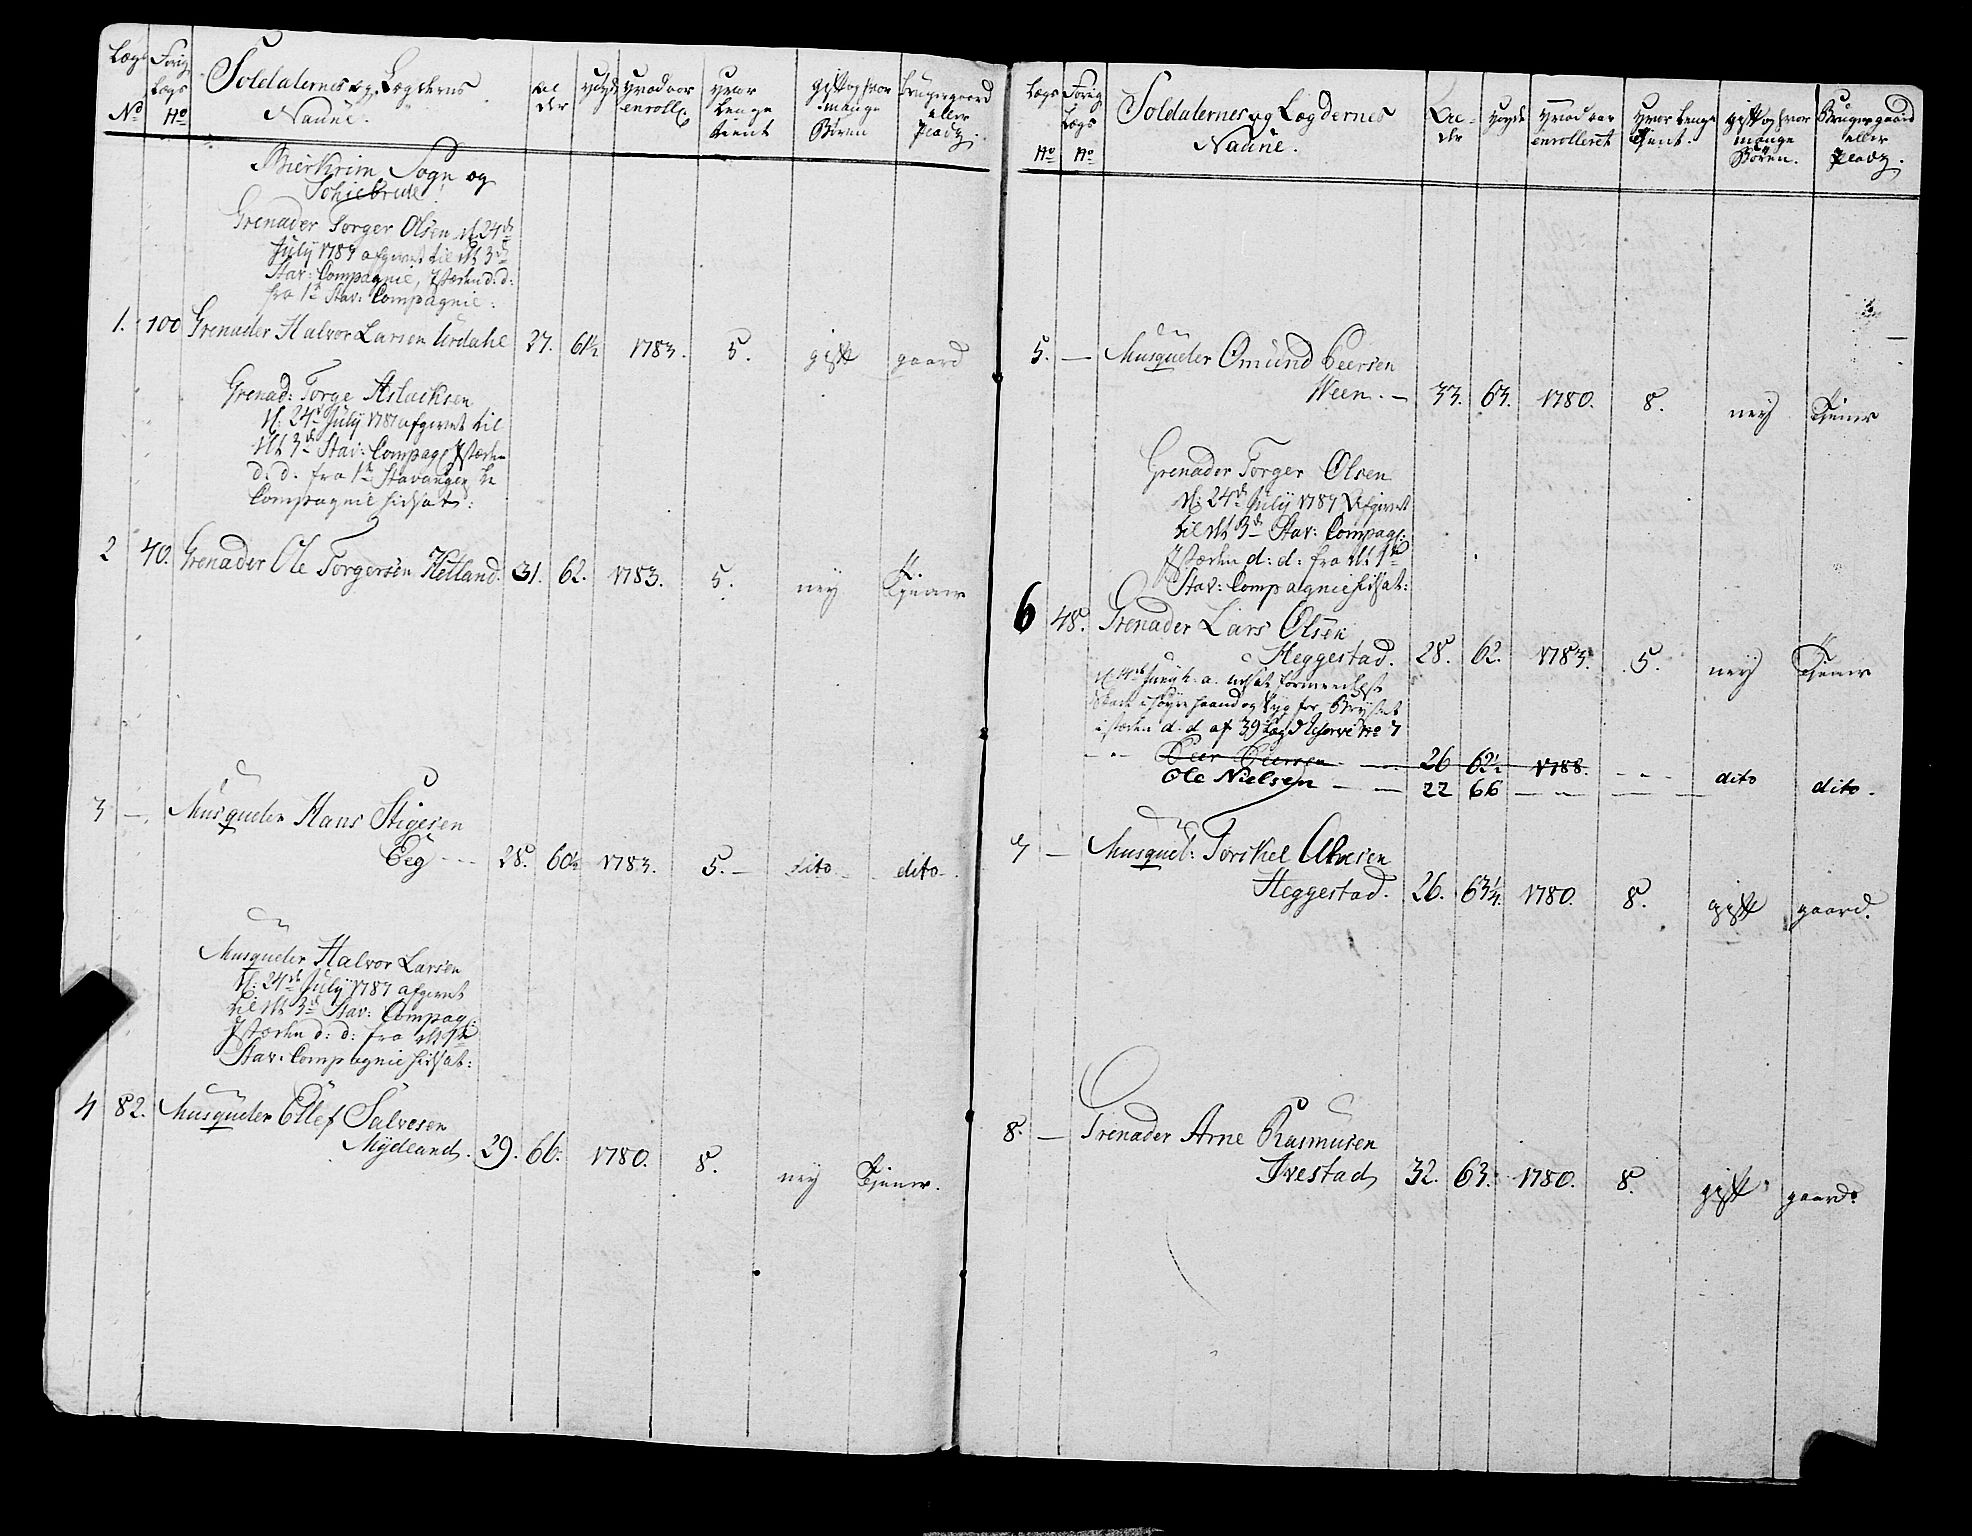 Lægs No
Forig Lægs No
Soldaternes og Lægdernes Naune.
Al der
Høyde
Hvad aar enroll:
Hvor Lenge tient
gift og hvor mange Børen
Bruger gaard eller Pladz.
Bierkrim Sogn og
Schibrede.
Grenader Torger Olsen d. 24de
July 1787 afgivet til dt 3de
Stav: Compagnie, Isteden d: d:
fra 1te Stav: Compagnie:
1. 100 Grenader Halvor Larsen Urdahl 27. 61½ 1783. 5. gift gaard
Grenad: Torge Aslacksen
d: 24de July 1787 afgivet til
dt 3de Stav: Compag: Isteden
d: d: fra 1te Stavangerske
Compagnie hidsat:
2 40. Grenader Ole Torgersen Hetland. 31. 62. 1783. 5. ney Tjener
3 — Musqueter Hans Stigesen
Eeg - - - 28. 60½ 1783. 5. — dito — dito —
Musqueter Halvor Larsen
d: 24de July 1787 afgivet
til dt 3de Stav: Compag:
Isteden d: d: fra dt 1te
Stav: Compagnie hidsat:
4 82. Musqueter Ellef Salvesen
Mydland. 29. 66. 1780. 8. ney Tjener.
Lægs No
Forig Lægs No
Soldaternes og Lægdernes Naune.
Al- der
Høyde
Hvad aar enrolleret
Hvor Lenge tient.
gift og hvor mange Børen.
Bruger gaard eller Pladz.
5. — Musqueter Omund Peersen
Ween. — 33. 63. 1780. 8. ney Tjener
Grenader Torger Olsen
d: 24de July 1787 Afgivet
til dt 3de Stav: Compag:
Isteden d: d: fra dt 1te
Stav: Compagnie hidsat:
6 48. Grenader Lars Olsen
Heggestad. 28. 62. 1783. 5. ney Tjener
d. 14de Juny h. a. udsat formedelst
Skade i høyre haand og Syg for Brystet
i steden d. d af 39 Lægd Reserve No 7
- - Peer Peersen - - 26 62½ 1788. - - - dito dito.
Ole Nielsen — — 22 66 — - — —
7 — Musquet: Torckel Alvesen
Heggestad. 26. 63¼. 1780. 8. gift gaard.
8. — Grenader Arne Rasmusen
Ivestad 32. 63. 1780. 8. gift gaard.